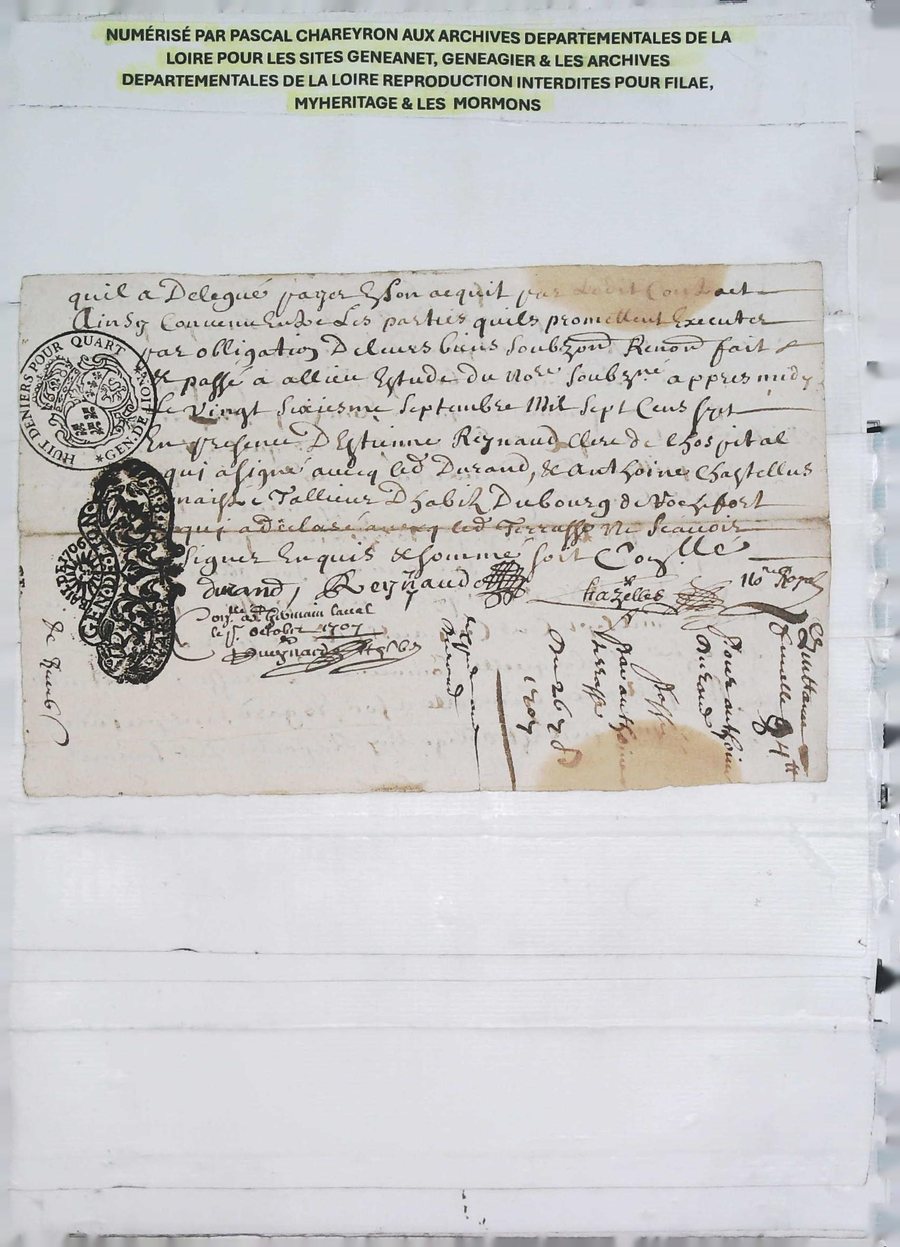 NUMÉRISÉ PAR PASCAL CHAREYRON AUX ARCHIVES DEPARTEMENTALES DE LA
LOIRE POUR LES SITES GENEANET, GENEAGIER & LES ARCHIVES
DEPARTEMENTALES DE LA LOIRE REPRODUCTION INTERDITES POUR FILAE,
MYHERITAGE & LES MORMONS
quil a Delegué payer Eson acquit par Ledit Contract
Ainsy Convenu Entre Les parties quils promettent Executer
par obligation De leurs biens Soubzon Renond fait &
passé a allieu Estude du Nore Soubzne appres midy
Le Vingt Sixiesme Septembre Mil Sept Cens sept
En presence D Estienne Reynaud Clerc de Lhospital
qui a signé avecq led Durand, & anthoine Chastellus
maistre Tallieur Dhabit Du bourg de Rochefort
qui a declaré avecq led Terrasse Ne Scavoir
Signer Enquis & somme soit Con^llé
durand, Reynaud
Chazelles
No^re Royal
HUIT DENIERS POUR QUART
GEN. DE
Con^llé a St Germain Laval
le 5 octobre 1707
Quittance
4^tt
Pour anthoine
Durand
Pour anthoine
terrasse
Du 26 7b
1707
durand